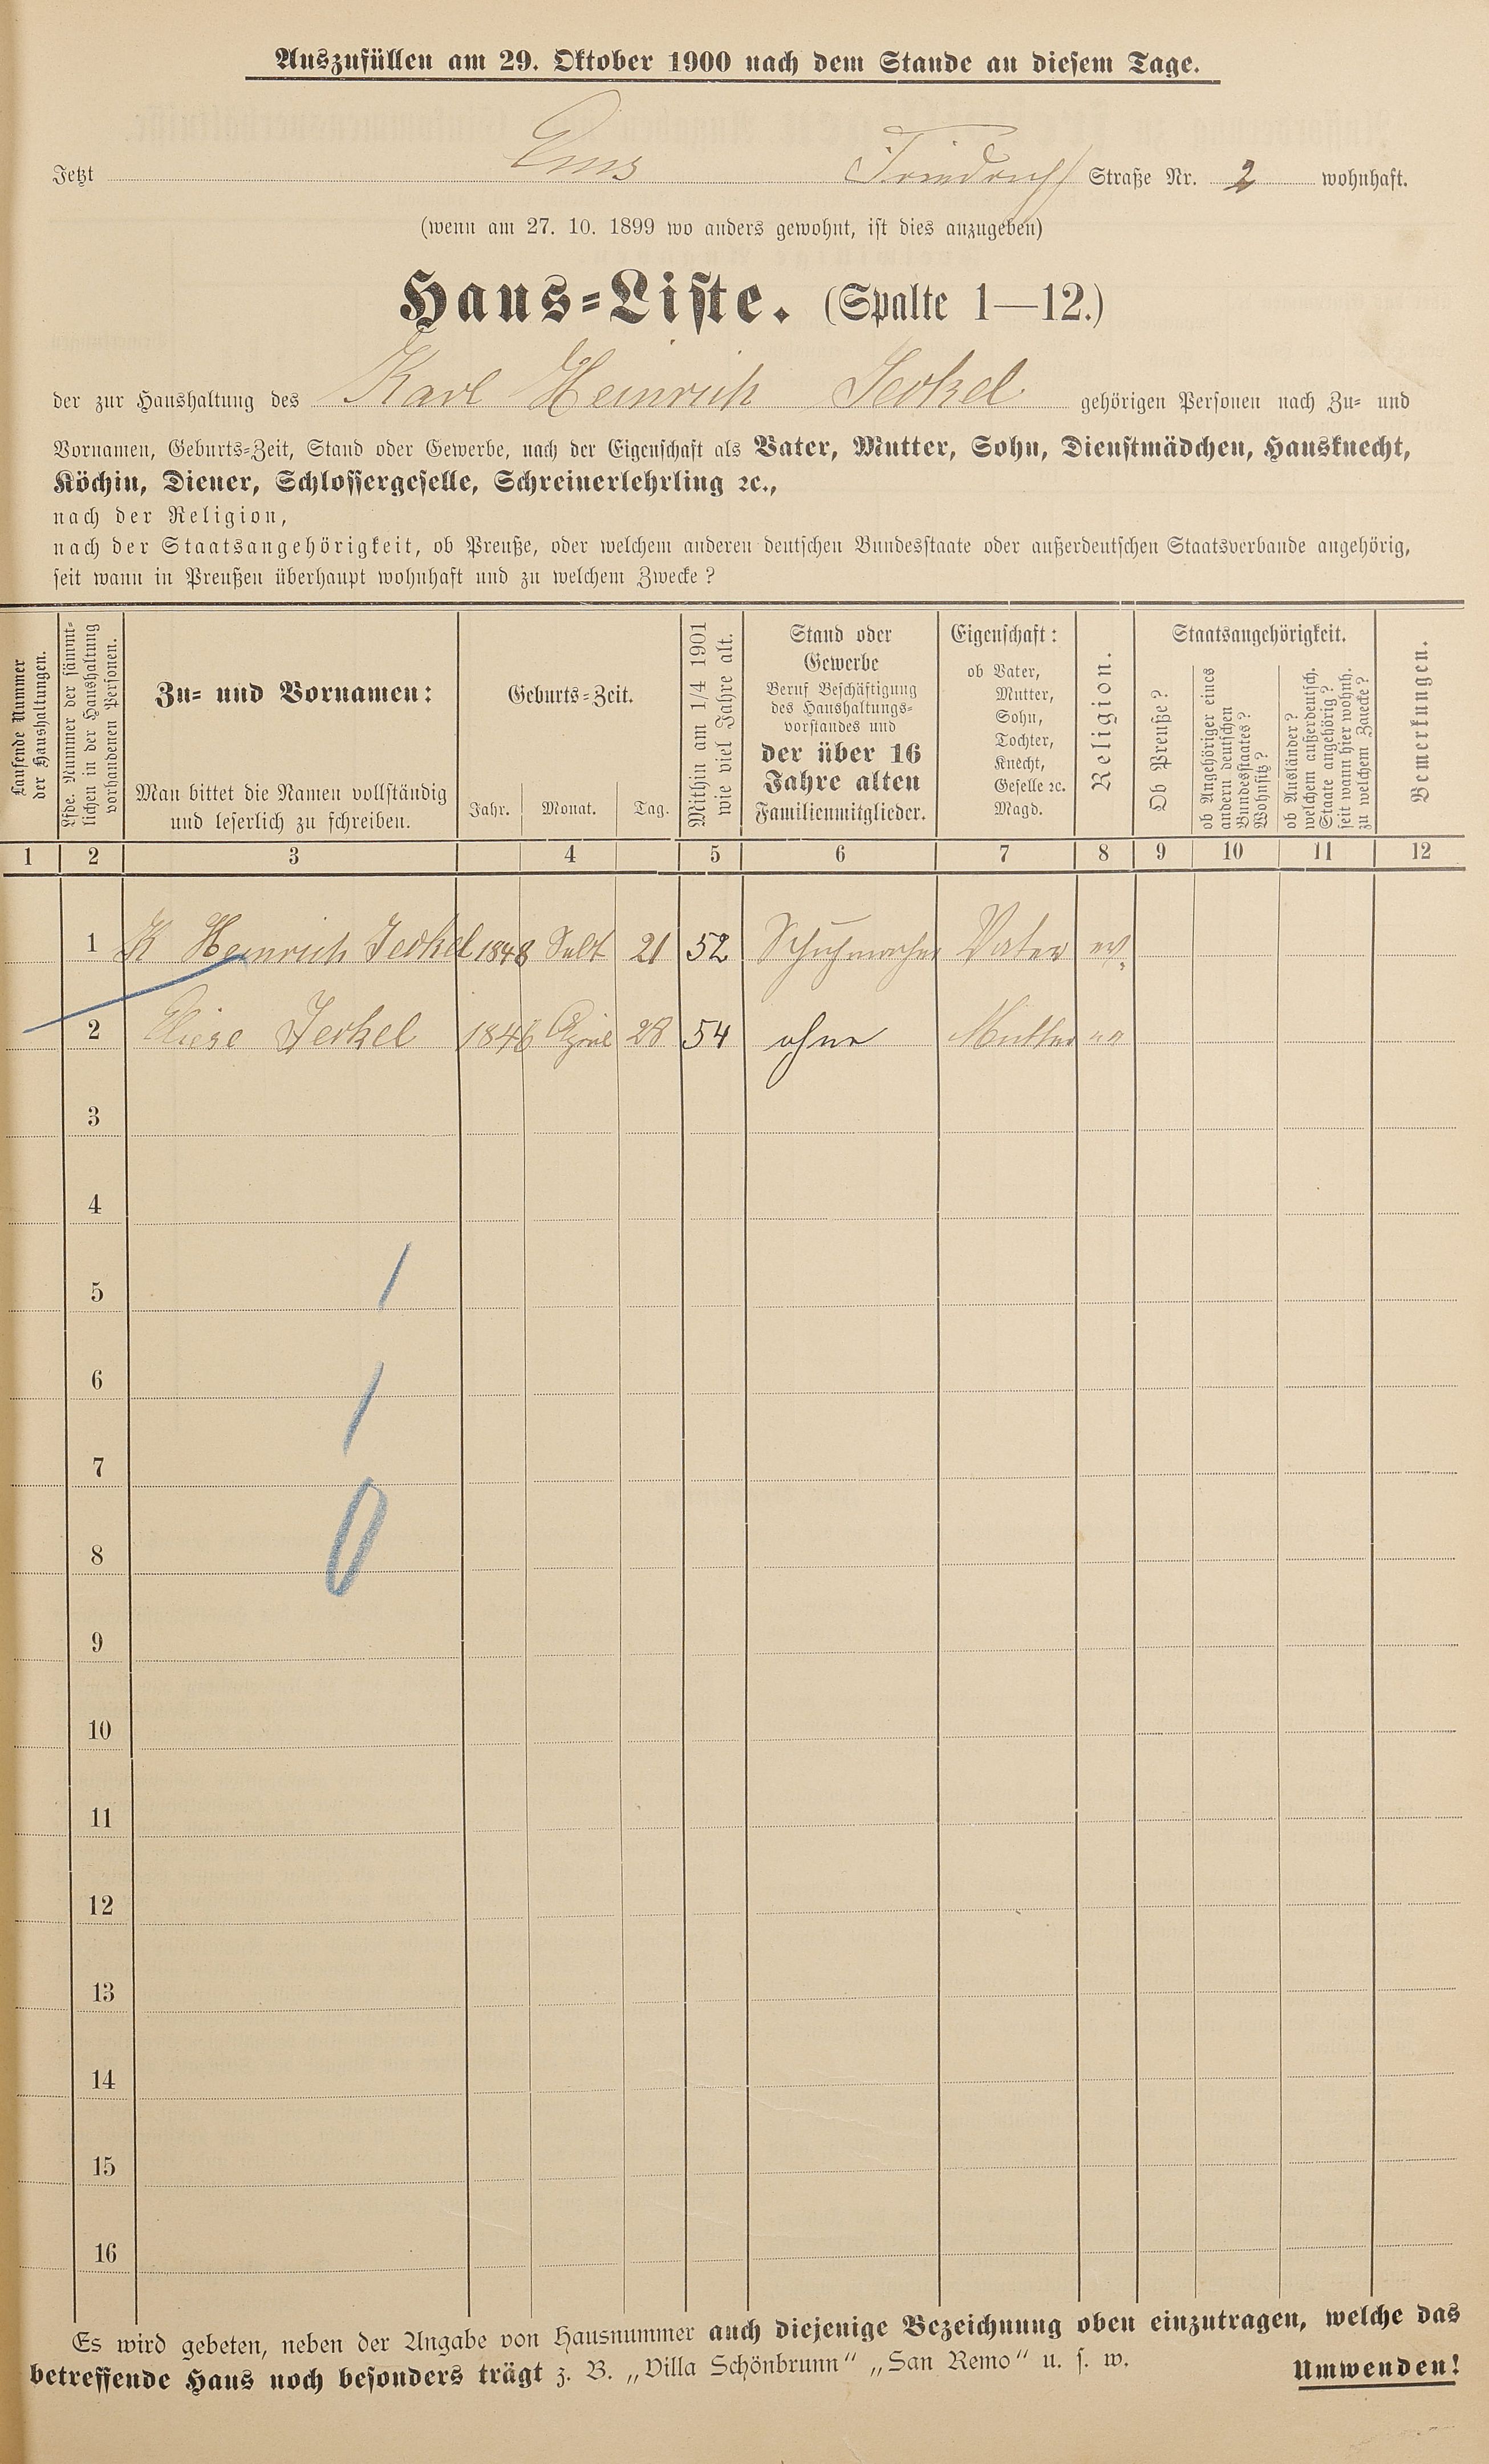 Auszufüllen am 29. Oktober 1900 nach dem Stande an diesem Tage.
Jetzt Ems Friedrich Straße Nr. 2 wohnhaft.
(wenn am 27. 10. 1899 wo anders gewohnt, ist dies anzugeben)
Haus-Liste. (Spalte 1—12.)
der zur Haushaltung des Karl Heinrich Jeckel gehörigen Personen nach Zu- und
Vornamen, Geburts-Zeit, Stand oder Gewerbe, nach der Eigenschaft als Vater, Mutter, Sohn, Dienstmädchen, Hausknecht,
Köchin, Diener, Schlossergeselle, Schreinerlehrling ꝛc.,
nach der Religion,
nach der Staatsangehörigkeit, ob Preuße, oder welchem anderen deutschen Bundesstaate oder außerdeutschen Staatsverbande angehörig,
seit wann in Preußen überhaupt wohnhaft und zu welchem Zwecke?
Laufende Nummer
der Haushaltungen.
Lfde. Nummer der sämmt-
lichen in der Haushaltung
vorhandenen Personen.
Zu- und Vornamen:
Man bittet die Namen vollständig
und leserlich zu schreiben.
Geburts-Zeit.
Jahr. Monat. Tag.
Mithin am 1/4 1901
wie viel Jahre alt.
Stand oder
Gewerbe
Beruf Beschäftigung
des Haushaltungs-
vorstandes und
der über 16
Jahre alten
Familienmitglieder.
Eigenschaft:
ob Vater,
Mutter,
Sohn,
Tochter,
Knecht,
Geselle ꝛc.
Magd.
Religion.
Staatsangehörigkeit.
Ob Preuße?
ob Angehöriger eines
andern deutschen
Bundesstaates?
Wohnsitz?
ob Ausländer?
welchem außerdeutsch.
Staate angehörig?
seit wann hier wohnh.
zu welchem Zwecke?
Bemerkungen.
1 2 3 4 5 6 7 8 9 10 11 12
1 K Heinrich Jeckel 1848 21 52 Schuhmacher Vater ev.
2 Eliese Jeckel 1846 April 28 54 ohne Mutter " "
3
4
5
6
7
8
9
10
11
12
13
14
15
16
Es wird gebeten, neben der Angabe von Hausnummer auch diejenige Bezeichnung oben einzutragen, welche das
betreffende Haus noch besonders trägt z. B. „Villa Schönbrunn“ „San Remo“ u. s. w.
Umwenden!